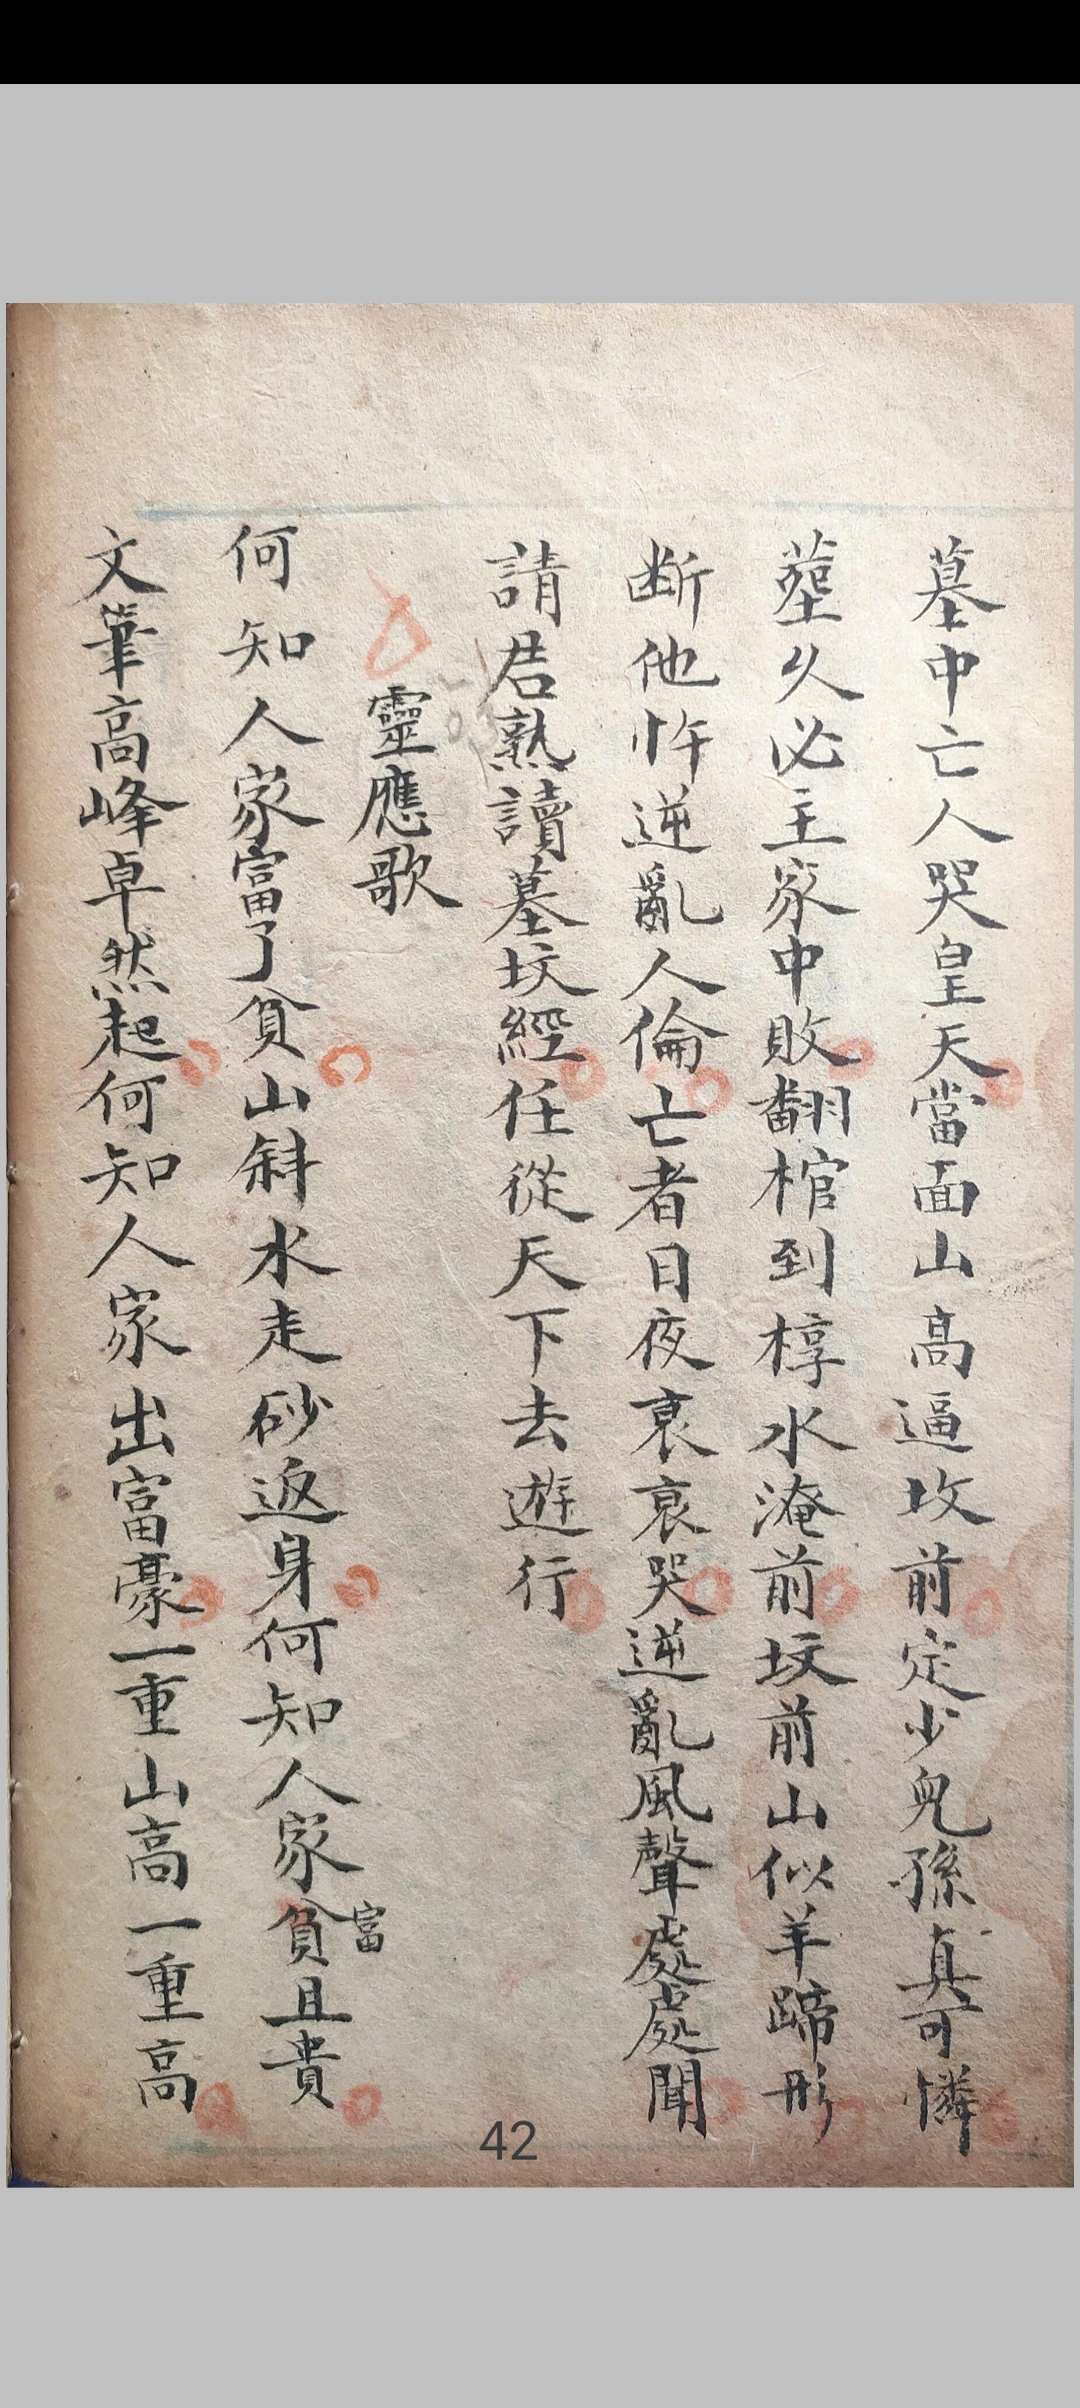 墓中亡人哭皇天當面山高逼坟前定少兒孫真可憐
塟久必主家中敗翻棺到椁水淹前坟前山似羊蹄形
断他忤逆亂人倫亡者日夜哀哀哭逆亂風聲處處聞
請君熟讀墓坟經任從天下去遊行
靈應歌
何知人家富了貧山斜水走砂返身何知人家貧富且貴
文筆高峰卓然起何知人家出富豪一重山高一重高
42